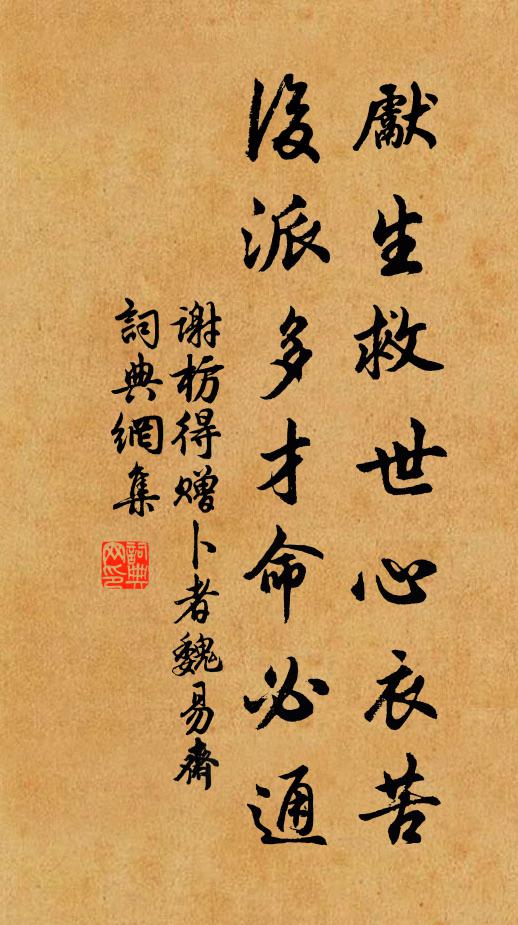 獻生救世心衣苦
後派多才命必通
謝枋得贈卜者魏易齋
詞典網集
詞典网印